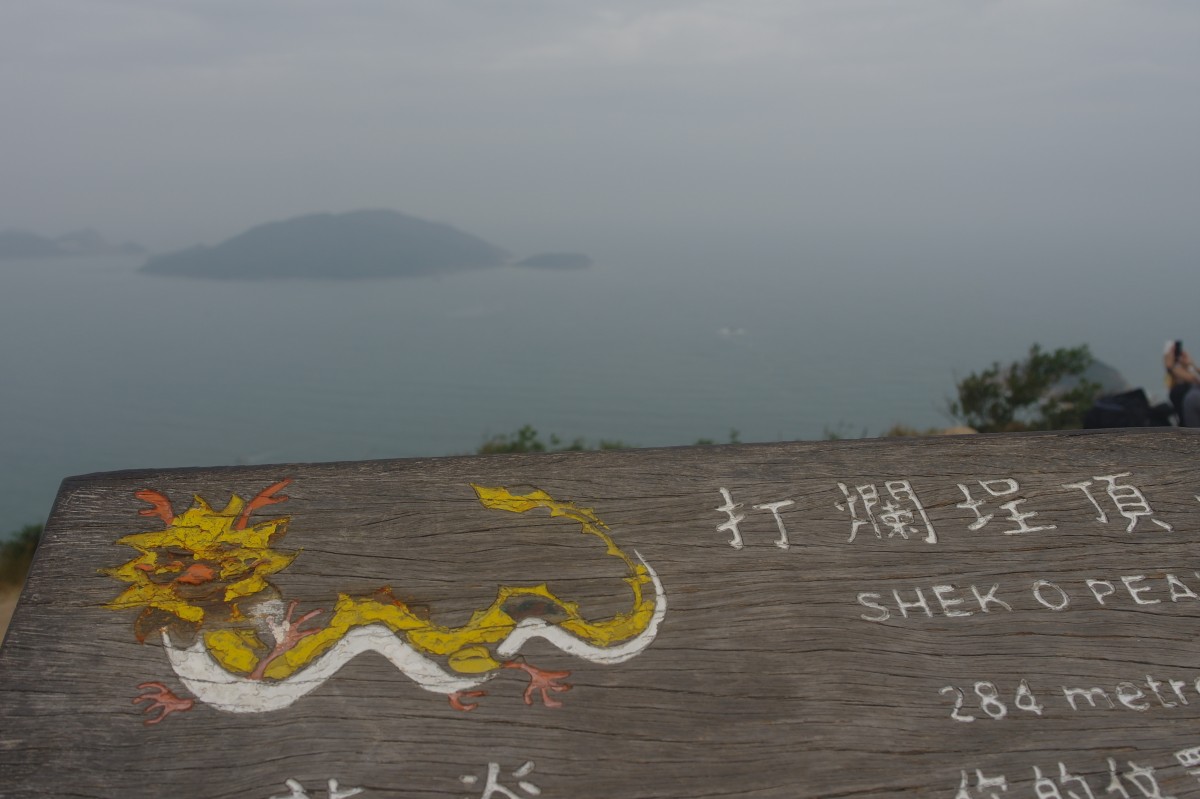 打爛埕頂
SHEK O PEA
284 metre
你的位置